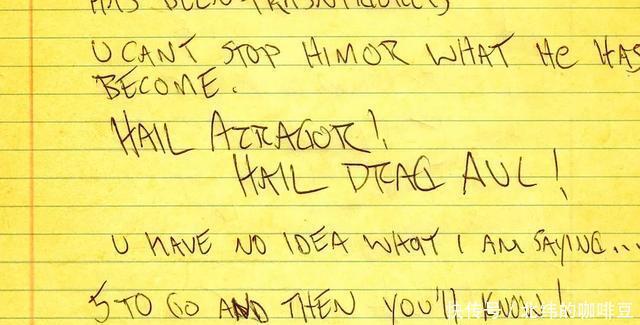 HAS BEEN
U CANT STOP HIM OR WHAT HE HAS
BECOME.
HAIL ARRAGOR!
HAIL DRAG AUL!
U HAVE NO IDEA WHAT I AM SAYING...
5 TO GO AND THEN YOU'll KNOW!
快传号/北纬的咖啡豆